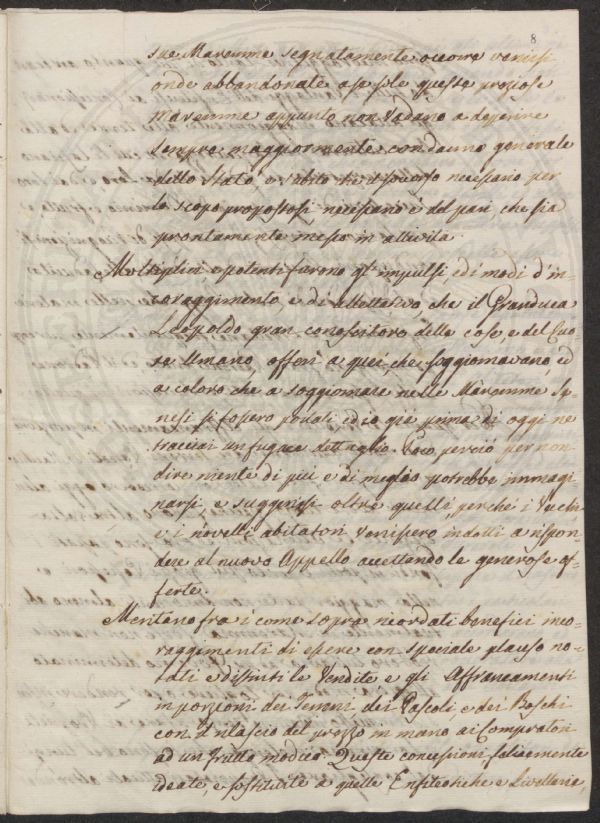 8
sue Maremme segnatamente occorre venirsi
onde abbandonate a se sole queste preziose
Maremme appunto non vadano a deperire
sempre maggiormente con danno generale
dello Stato e subito che il soccorso necessario per
lo scopo propostosi, necessario è del pari, che sia
prontamente messo in attività.
Moltiplici, e potenti furono gl'impulsi, ed i modi d'in-
coraggimento, e di allettativo che il Granduca
Leopoldo gran conoscitore delle cose, e del Cuo-
re Umano, offerì a quei che soggiornavano, ed
a coloro che a soggiornare nelle Maremme Sa-
nesi si fossero portati ed io già prima di oggi ne
tracciai un fugace dettaglio. Poco, perciò per non
dire niente di più e di meglio potrebbe immagi-
narsi, e suggerirsi oltre quelli, perchè i Vecchi
e i novelli abitatori venissero indotti a rispon-
dere al nuovo Appello accettando le generose of-
ferte.
Meritano fra i come sopra ricordati benefici inco-
raggimenti di essere con speciale plauso no-
tati e distinti le Vendite e gli Affrancamenti
in porzioni dei Terreni dei Pascoli, e dei Boschi
con il rilascio del prezzo in mano ai Compratori
ad un frutto modico. Queste concessioni felicemente
ideate, e sostituite a quelle Enfiteotiche e Livellarie,